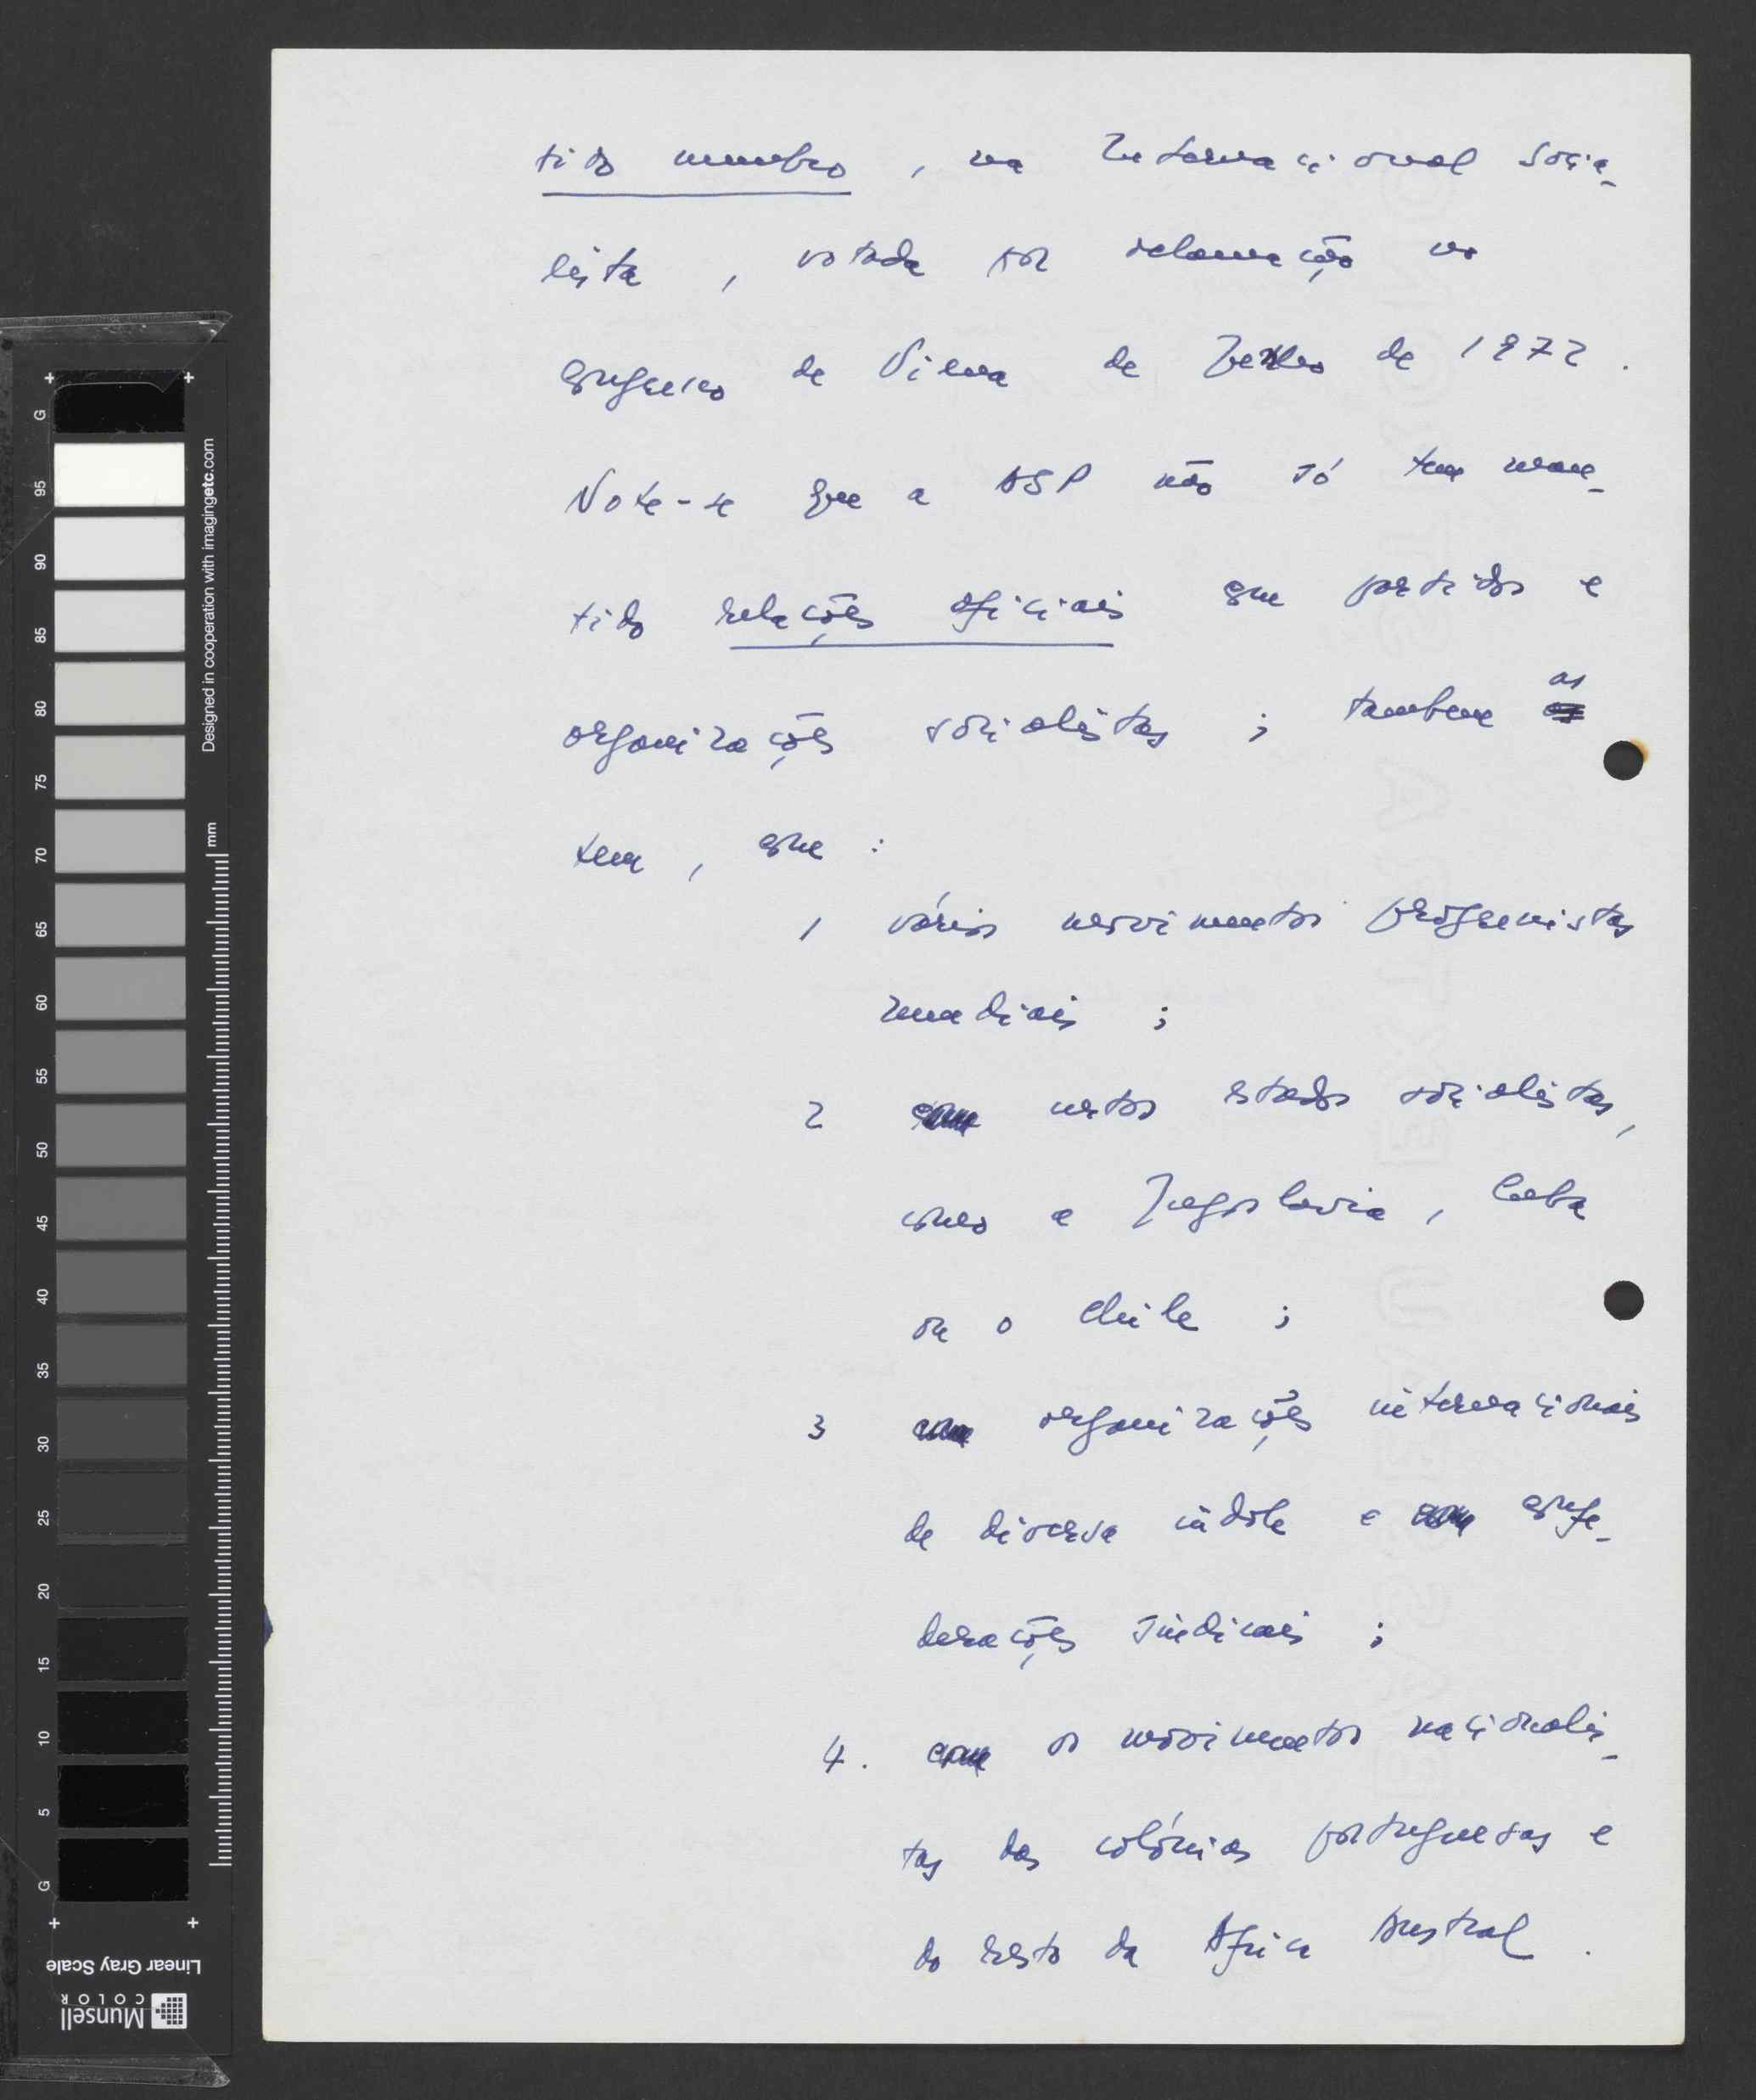 tido membro, na Internacional Socia-
lista, votada por aclamação no
Congresso de Viena de Junho de 1972.
Note-se que a ASP não só tem man-
tido relações oficiais com partidos e
organizações socialistas; tambem as
tem, com:
1 vários movimentos progressistas
mundiais;
2 certos estados socialistas,
como a Jugoslavia, Cuba
ou o Chile;
3 organizações internacionais
de diversa indole e confe-
derações sindicais;
4. os movimentos nacionalis-
tas das colónias portuguesas e
do resto da Africa Austral.
G 95 90 85 80 75 70 65 60 55 50 45 40 35 30 25 20 15 10 5 G
Designed in cooperation with imagingetc.com
mm
Linear Gray Scale
Munsell
COLOR